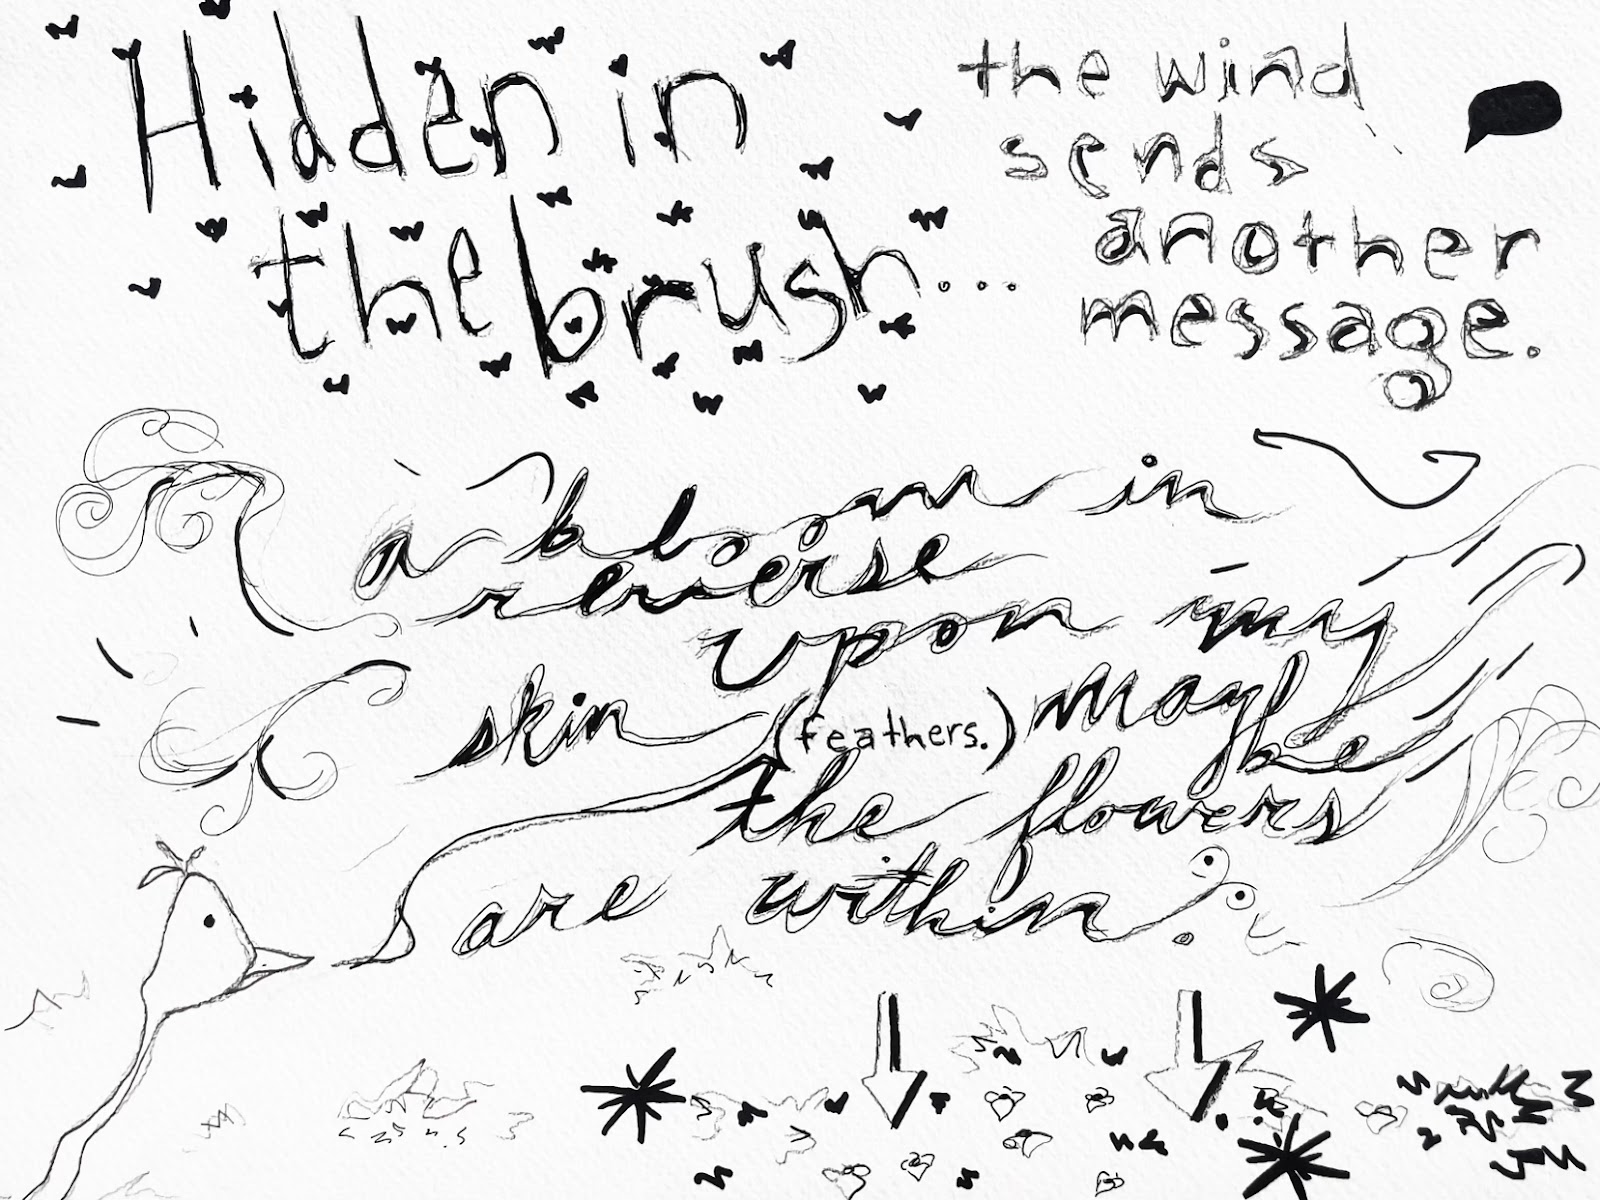 Hidden in
the brush...
the wind
sends
another
message.
a bloom in
reverse
upon my
skin (feathers.) maybe
the flowers
are within.